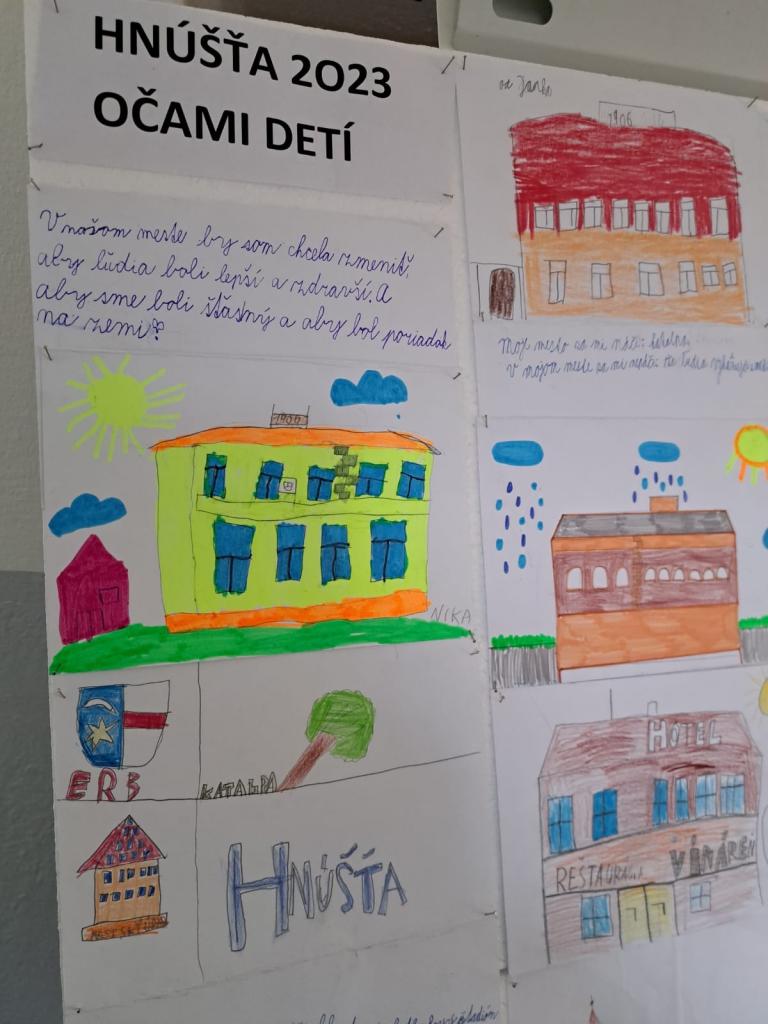 HNÚŠŤA 2023
OČAMI DETÍ
V našom meste by som chcela zmeniť,
aby ľudia boli lepší a zdravší. A
aby sme boli šťasný a aby bol poriadok
na zemi
1906
NIKA
ERB
KATALPA
HNÚŠŤA
od Janka
1906
Moje mesto sa mi páči:
v mojom meste sa mi nepáči: že ľudia
HOTEL
REŠTAURA
VINÁREŇ